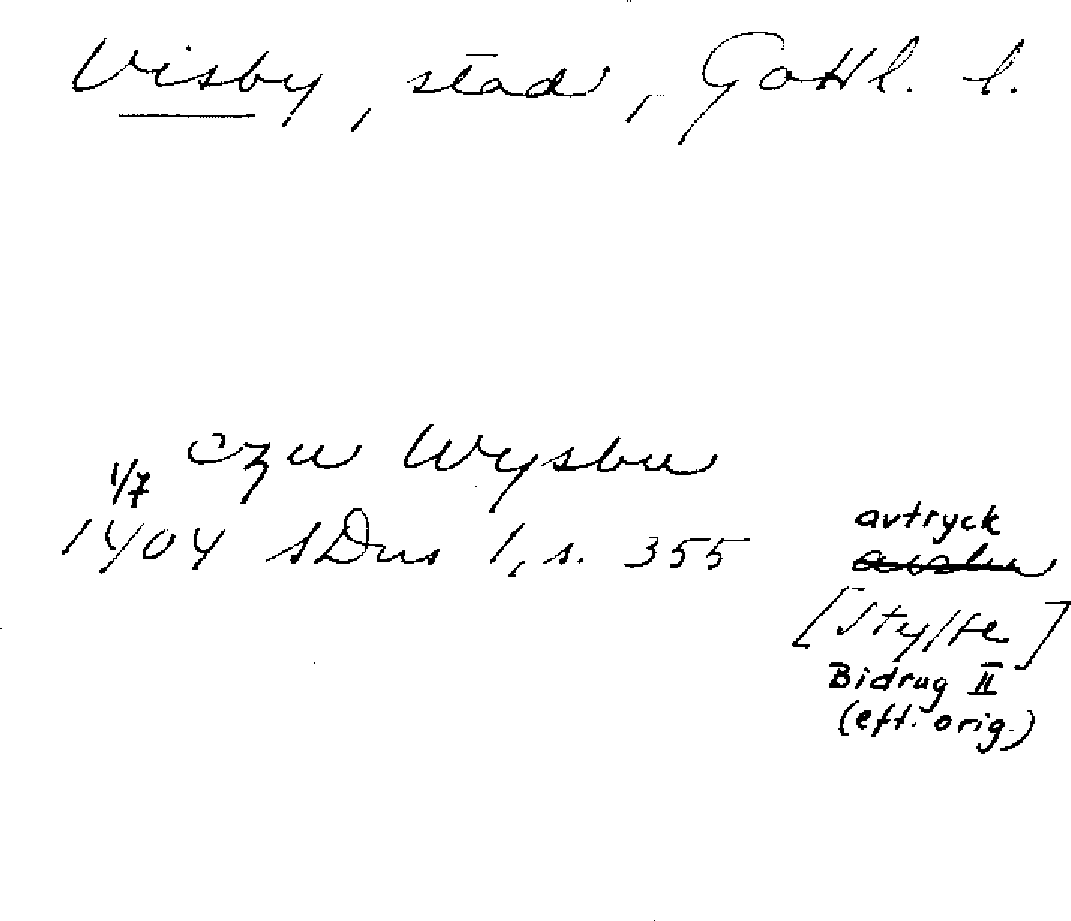 Visby, stad, Gotl. l.
czu Wysbu
1/7
1404 SDns 1, s. 355
avtryck
[Styffe]
Bidrag II
(eft. orig.)